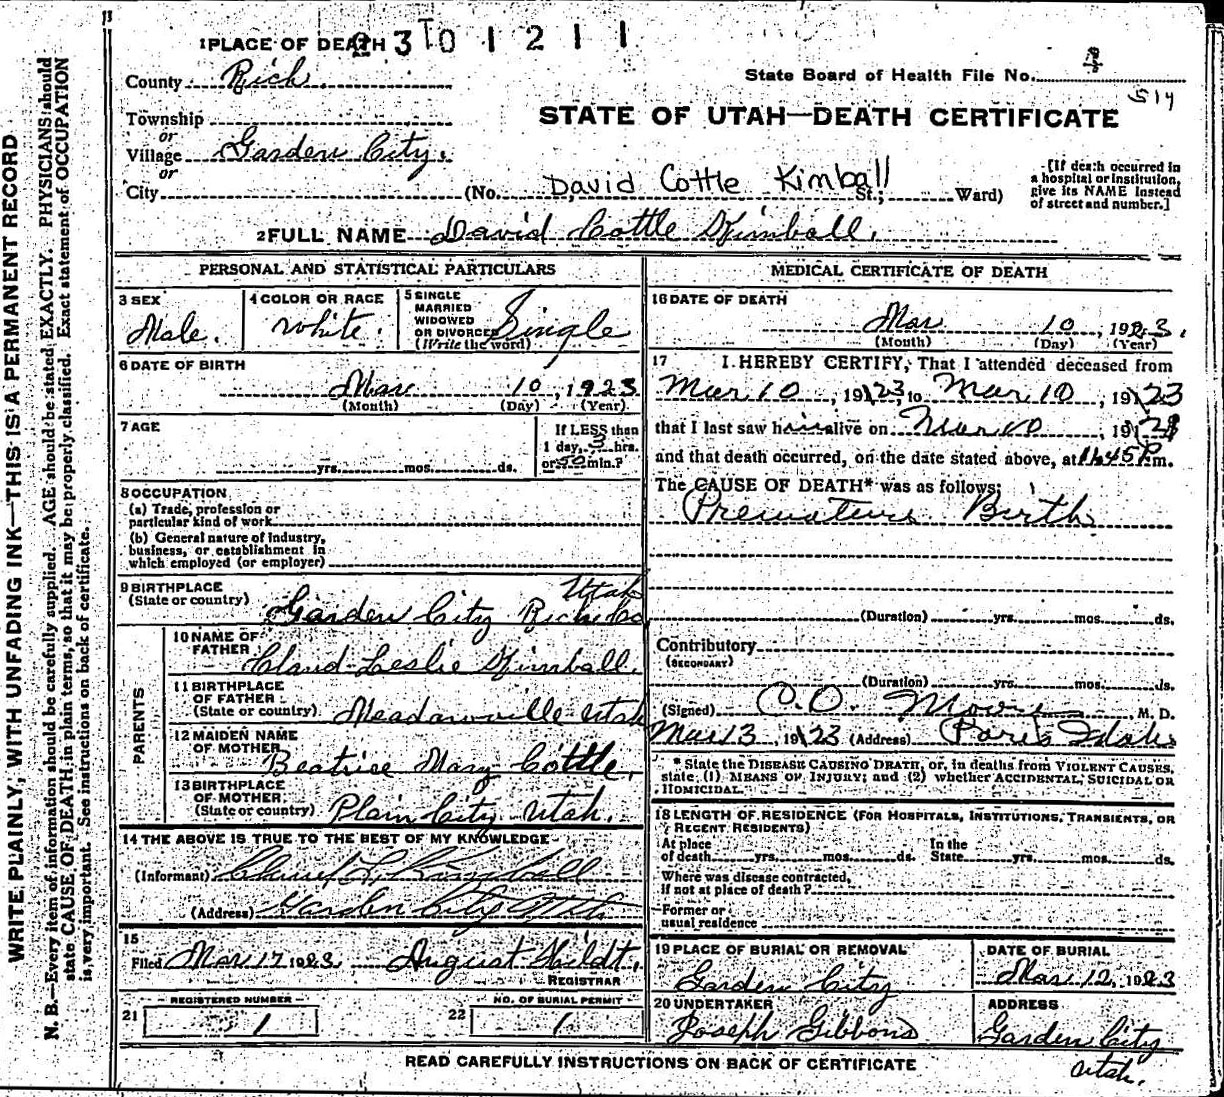 1 PLACE OF DEATH 23 TO 1 2 1 1
County Rich.
State Board of Health File No. 3
514
STATE OF UTAH—DEATH CERTIFICATE
Township
or
Village Garden City.
or
City (No. David Cottle Kimball St.; Ward)
[If death occurred in
a hospital or institution,
give its NAME instead
of street and number.]
2 FULL NAME David Cottle Kimball.
PERSONAL AND STATISTICAL PARTICULARS
3 SEX
Male.
4 COLOR OR RACE
White.
5 SINGLE
MARRIED
WIDOWED
OR DIVORCED
(Write the word)
Single
6 DATE OF BIRTH
Mar 10, 1923
(Month) (Day) (Year)
7 AGE
yrs. mos. ds.
If LESS than
1 day, 3 hrs.
or 50 min.?
8 OCCUPATION
(a) Trade, profession or
particular kind of work
(b) General nature of industry,
business, or establishment in
which employed (or employer)
9 BIRTHPLACE
(State or country) Garden City Rich Co Utah
PARENTS
10 NAME OF
FATHER Claud Leslie Kimball.
11 BIRTHPLACE
OF FATHER
(State or country) Meadowville Utah
12 MAIDEN NAME
OF MOTHER Beatrice Mary Cottle.
13 BIRTHPLACE
OF MOTHER
(State or country) Plain City Utah.
14 THE ABOVE IS TRUE TO THE BEST OF MY KNOWLEDGE
(Informant) Claud L. Kimball
(Address) Garden City Utah
15
Filed Mar 17 1923 August Hildt.
REGISTRAR
21 REGISTERED NUMBER
1
22 NO. OF BURIAL PERMIT
1
MEDICAL CERTIFICATE OF DEATH
16 DATE OF DEATH
Mar 10, 1923.
(Month) (Day) (Year)
17 I HEREBY CERTIFY, That I attended deceased from
Mar 10, 1923, to Mar 10, 1923
that I last saw him alive on Mar 10, 192
and that death occurred, on the date stated above, at 11:45 P.m.
The CAUSE OF DEATH* was as follows:
Premature Birth
(Duration) yrs. mos. ds.
Contributory
(SECONDARY)
(Duration) yrs. mos. ds.
(Signed) O.O. Moore, M. D.
Mar 13, 1923 (Address) Paris Idaho
* State the DISEASE CAUSING DEATH, or, in deaths from VIOLENT CAUSES,
state (1) MEANS OF INJURY; and (2) whether ACCIDENTAL, SUICIDAL OR
HOMICIDAL.
18 LENGTH OF RESIDENCE (FOR HOSPITALS, INSTITUTIONS, TRANSIENTS, OR
RECENT RESIDENTS)
At place
of death yrs. mos. ds.
In the
State yrs. mos. ds.
Where was disease contracted,
if not at place of death?
Former or
usual residence
19 PLACE OF BURIAL OR REMOVAL
Garden City
DATE OF BURIAL
Mar 12, 1923
20 UNDERTAKER
Joseph Gibbons
ADDRESS
Garden City
Utah.
READ CAREFULLY INSTRUCTIONS ON BACK OF CERTIFICATE
WRITE PLAINLY, WITH UNFADING INK—THIS IS A PERMANENT RECORD
N. B.—Every item of information should be carefully supplied. AGE should be stated EXACTLY. PHYSICIANS should
state CAUSE OF DEATH in plain terms, so that it may be properly classified. Exact statement of OCCUPATION
is very important. See instructions on back of certificate.